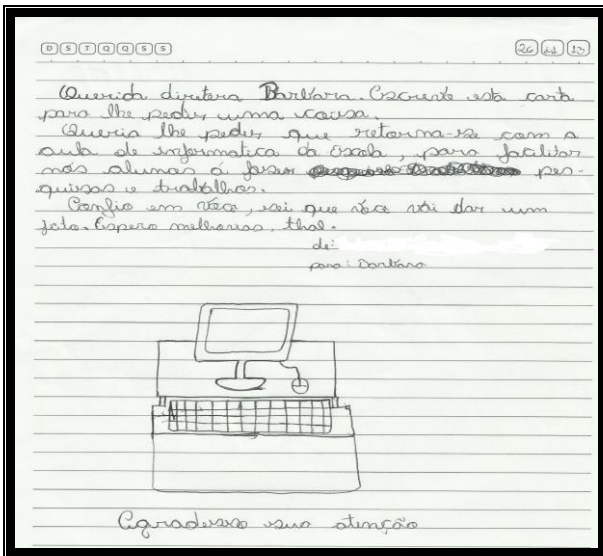 D S T Q Q S S 26 11 13
Querida diretora Barbara. Escrevo esta carta
para lhe pedir uma causa.
Queria lhe pedir que retorna-se com a
aula de informatica da Escola, para facilitar
nós alunos á faser pes-
quisas e trabalhos.
Confio em voce, sei que voce vai dar um
jeito. Espero melhorias, thal.
de:
para: Barbara
Agradesso sua atenção